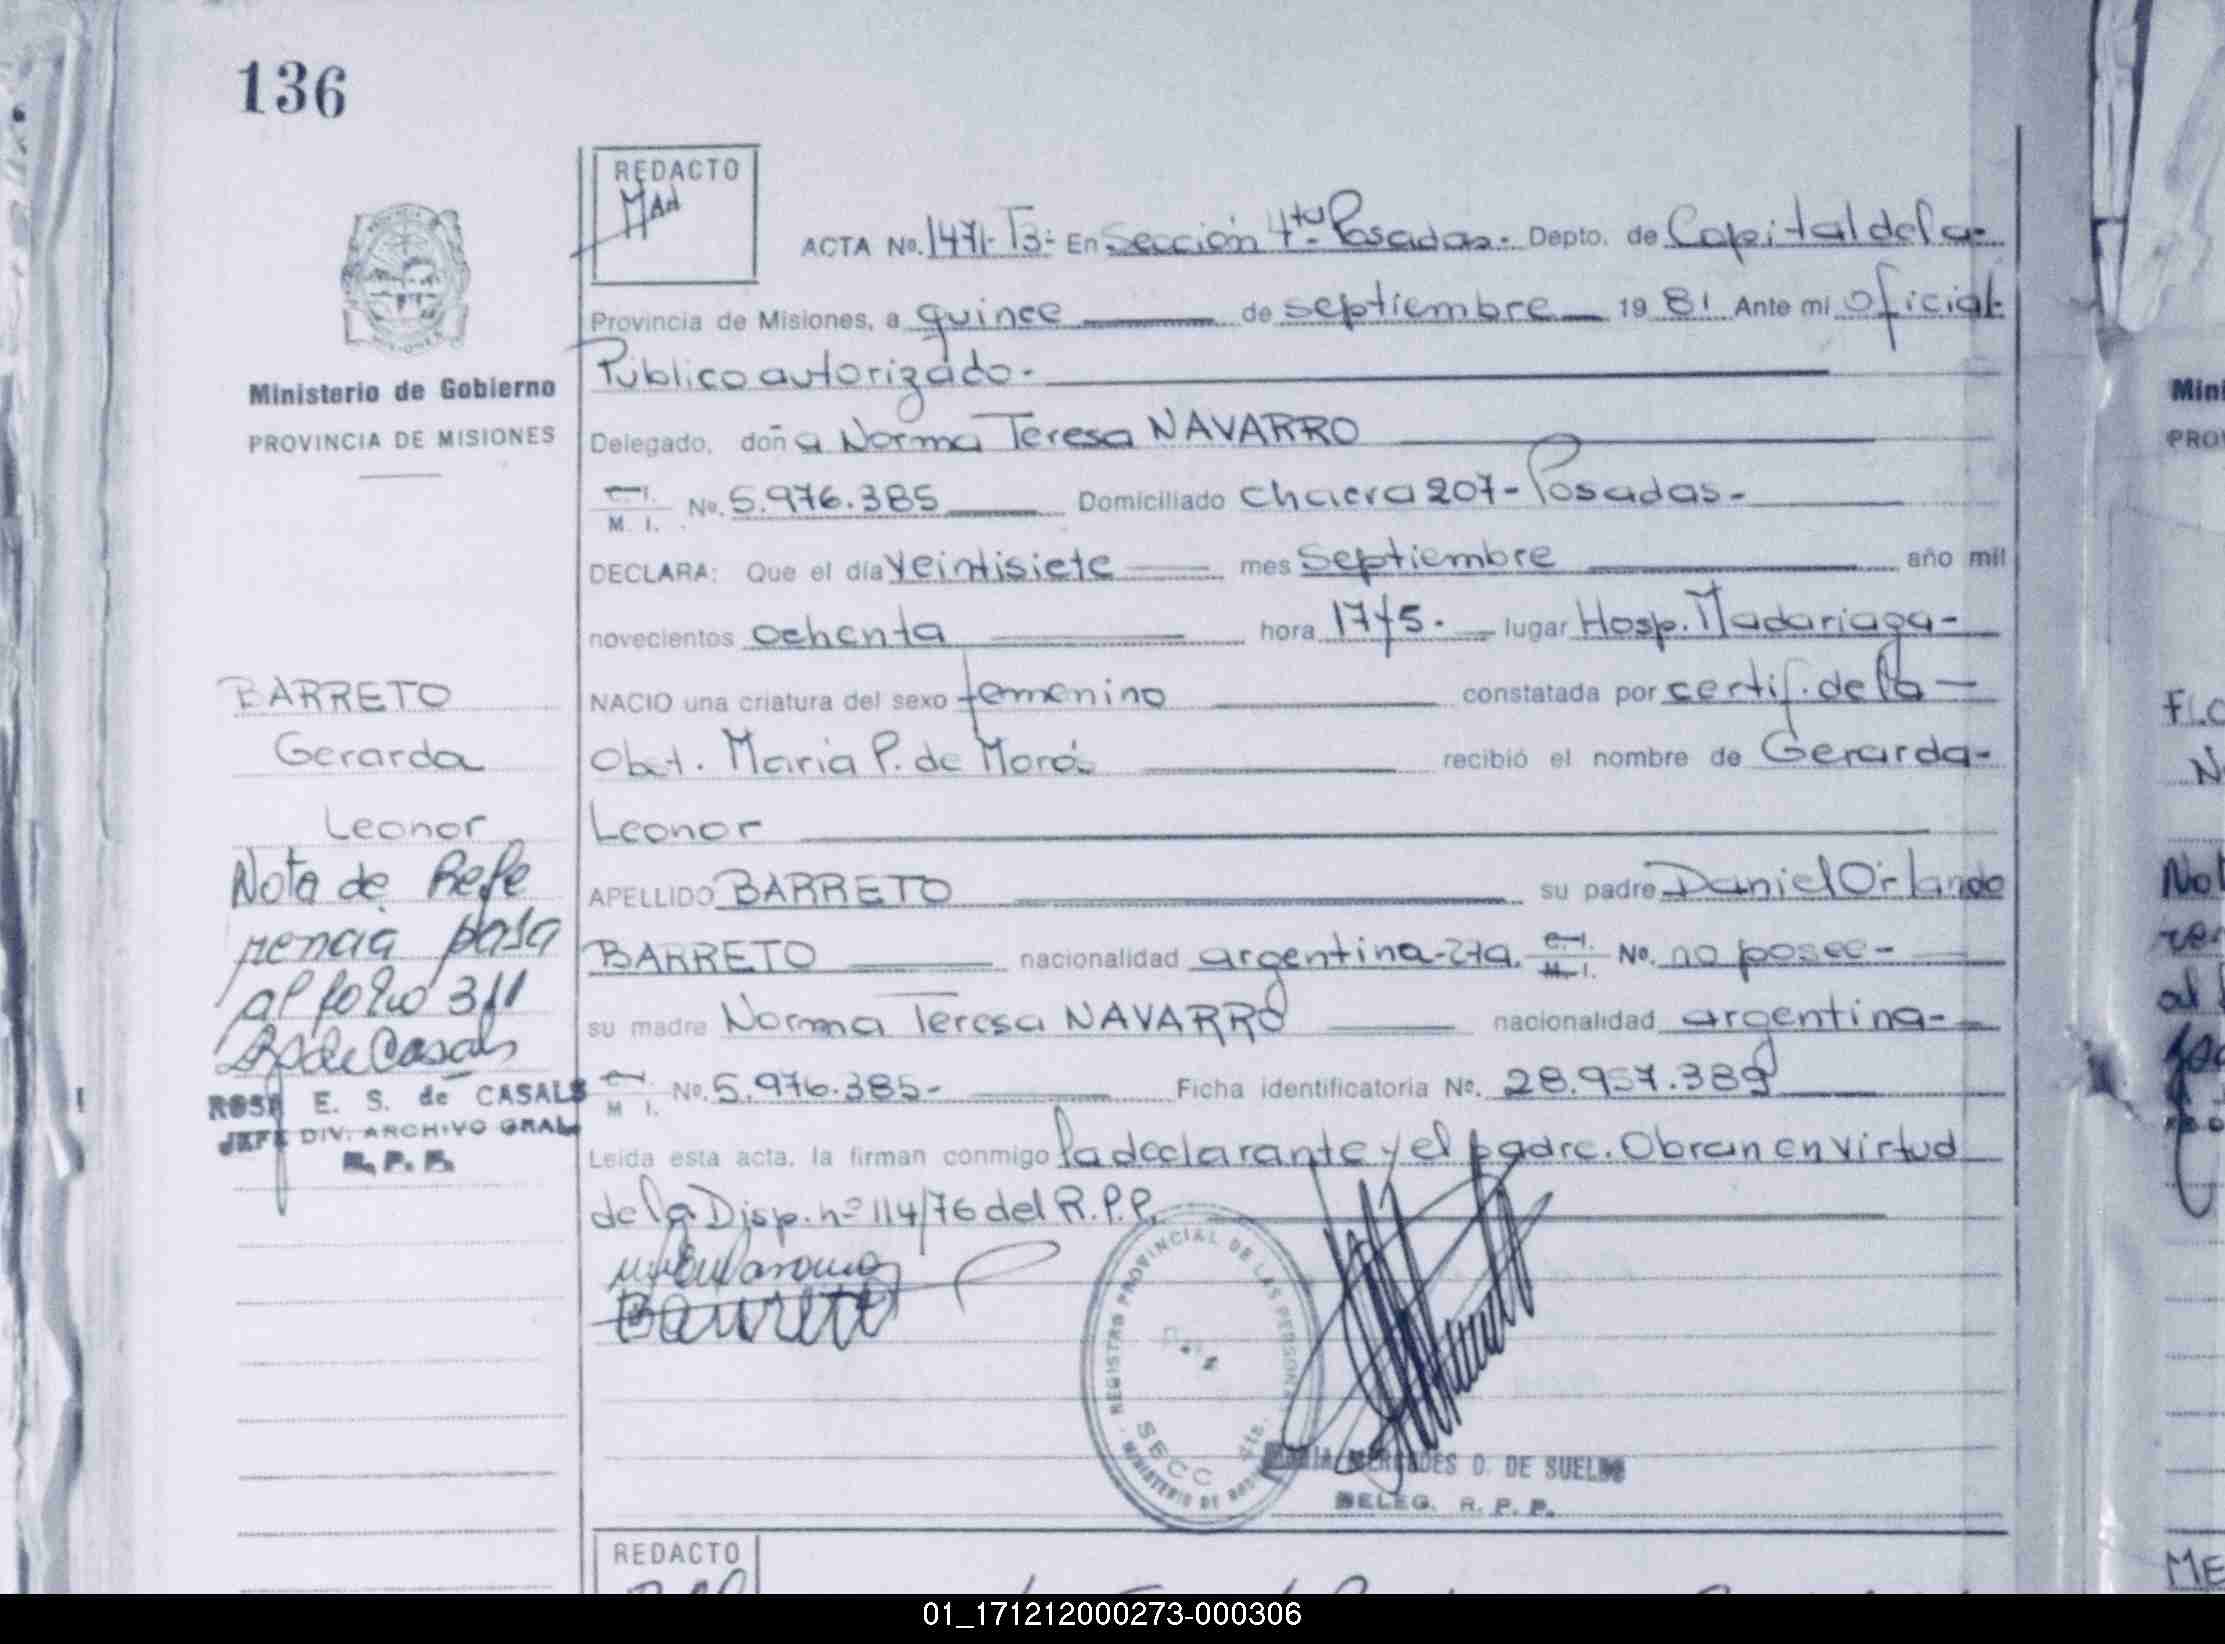 136
REDACTO
MAN
ACTA No. 1471- T3- En Sección 4ta- Posadas- Depto. de Capital de la-
Provincia de Misiones, a quince de septiembre 19 81 Ante mi Oficial
Público autorizado-
Ministerio de Gobierno
PROVINCIA DE MISIONES
Delegado, doña Norma Teresa NAVARRO
C. I.
M. I. No. 5.976.385 Domiciliado Chacra 207- Posadas-
DECLARA: Que el día veintisiete mes septiembre año mil
novecientos ochenta hora 17y5. lugar Hosp. Madariaga-
NACIO una criatura del sexo femenino constatada por certif. de la
Obst. María P. de recibió el nombre de Gerarda-
Leonor
APELLIDO BARRETO su padre Daniel Orlando
BARRETO nacionalidad argentina C. I. M. I. No. no posee-
su madre Norma Teresa NAVARRO nacionalidad argentina-
C. I.
M I. No. 5.976.385- Ficha identificatoria No. 28.957.389
Leída esta acta, la firman conmigo la declarante y el padre. Obran en virtud
de la Disp. nº 114/76 del R.P.P.
BARRETO
Gerarda
Leonor
Nota de Refe
rencia pasa
al folio 311
de Casals
ROSA E. S. de CASALS
JEFE DIV. ARCHIVO GRAL.
R. P. P.
Barreto
REGISTRO PROVINCIAL DE LAS PERSONAS
SECC 4ta.
MINISTERIO DE
MARIA MERCEDES D. DE SUELDO
DELEG. R. P. P.
REDACTO
Mini
PRO
FLO
N
Not
ren
al
ME
01_171212000273-000306